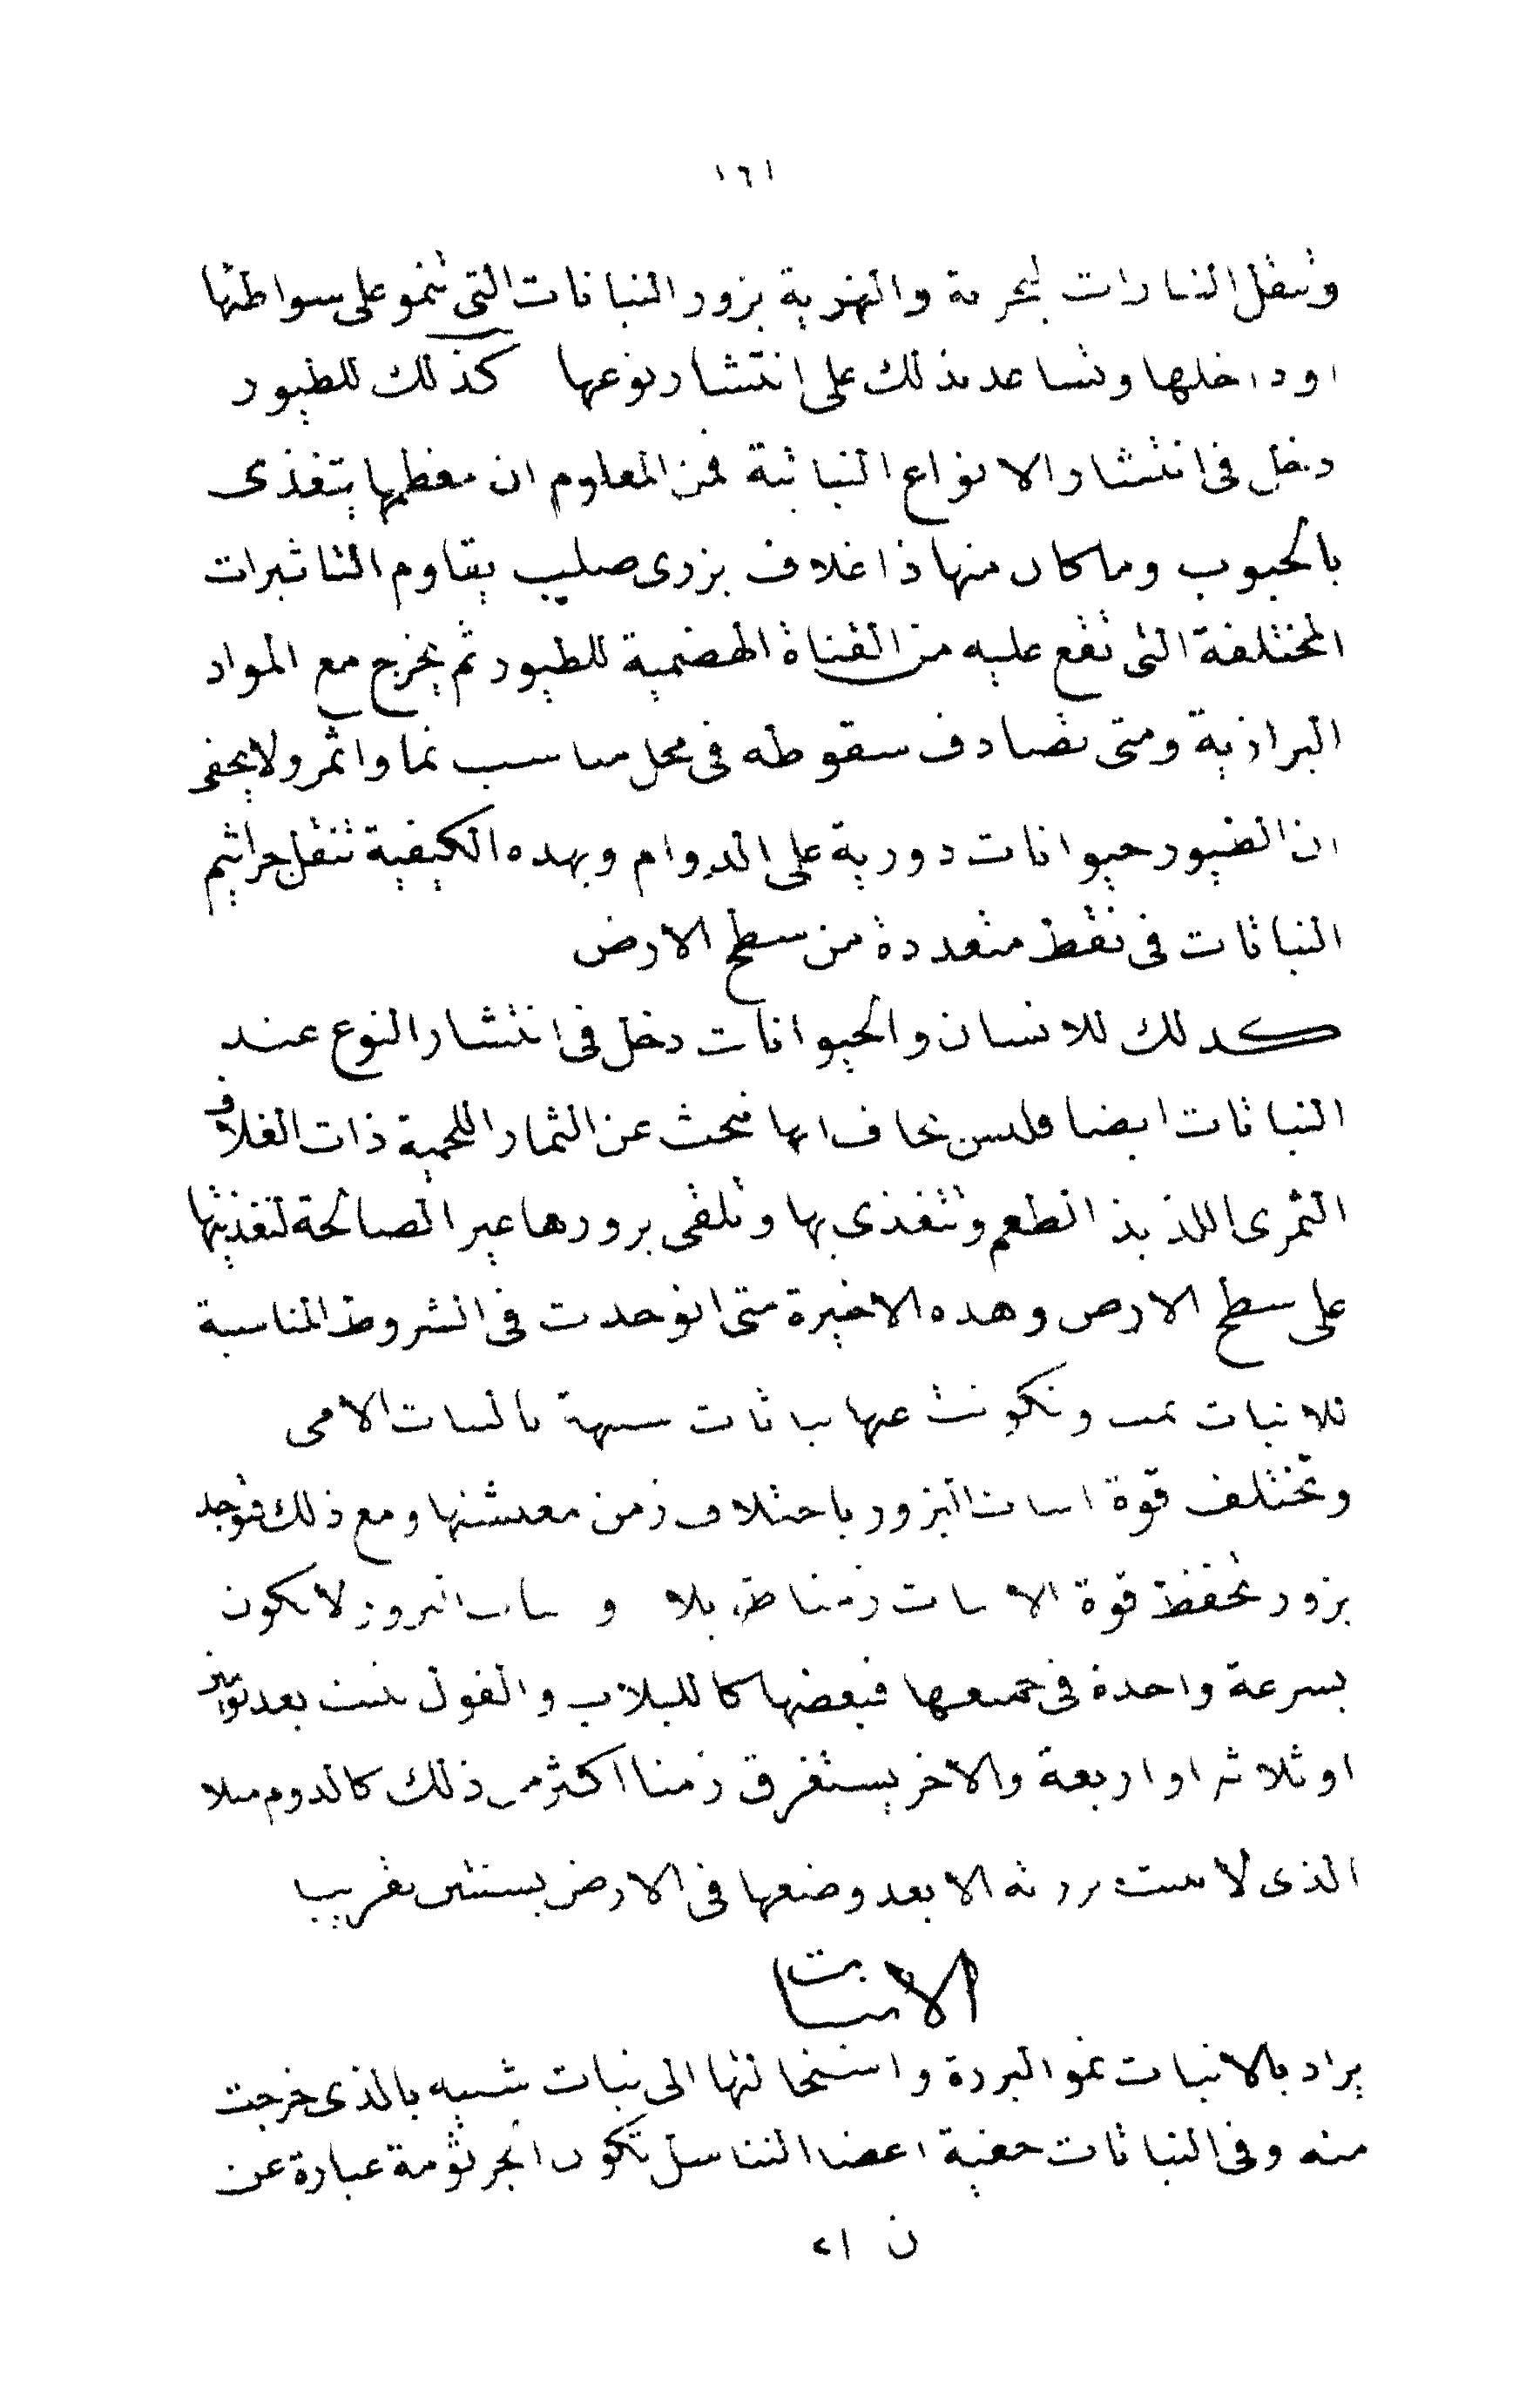 ١٦١
وتنقل التيارات البحرية والنهرية بزور النباتات التى تنمو على سواطئها
او داخلها وتساعد بذلك على انتشار نوعها كذلك للطيور
دخل فى انتشار الانواع النباتية فمن المعلوم ان معظمها يتغذى
بالحبوب وما كان منها ذا غلاف بزرى صليب يقاوم التاثيرات
المختلفة التى تقع عليه من القناة الهضمية للطيور ثم يخرج مع المواد
البرازية ومتى تصادف سقوطه فى محل مناسب نما واثمر ولا يخفى
ان الطيور حيوانات دورية على الدوام وبهذه الكيفية تنقل جراثيم
النباتات فى نقط متعددة من سطح الارض
كذلك للانسان والحيوانات دخل فى انتشار النوع عند
النباتات ايضا فليس بخاف انها تبحث عن الثمار اللحمية ذات الغلاف
الثمرى اللذيذ الطعم وتتغذى بها وتلقى بزورها غير الصالحة لتغذيتها
على سطح الارض وهذه الاخيرة متى انوجدت فى الشروط المناسبة
للانبات نمت وتكونت عنها نباتات شبيهة بالنبات الامى
وتختلف قوة انبات البزور باختلاف زمن معيشتها ومع ذلك فتوجد
بزور تحفظ قوة الانبات زمنا طويلا و انبات البزور لا يكون
بسرعة واحدة فى جميعها فبعضها كاللبلاب والفول ينبت بعد يومين
او ثلاثة او اربعة والاخر يستغرق زمنا اكثر من ذلك كالدوم مثلا
الذى لا تنبت بزرته الا بعد وضعها فى الارض بسنتين تقريبا
الانبات
يراد بالانبات نمو البزرة واستحالتها الى نبات شبيه بالذى خرجت
منه وفى النباتات خفية اعضا التناسل تكون الجرثومة عبارة عن
ن ٢١